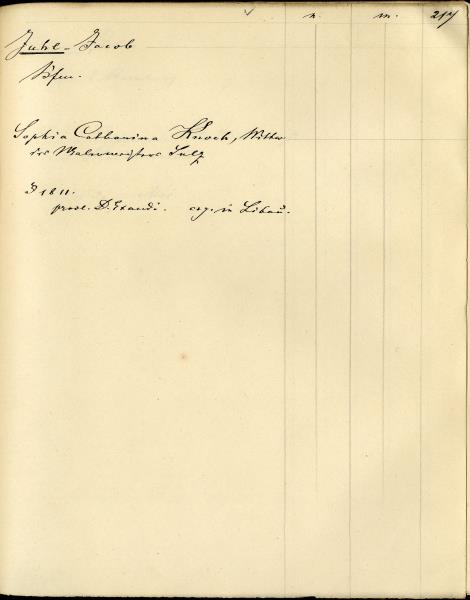 n. m. 217
Juhl - Jacob
Sophia Catharina Knoch, Wittwe
des Malermeisters Sulz
1811.
procl. D. Exaudi. cop. in Libau.